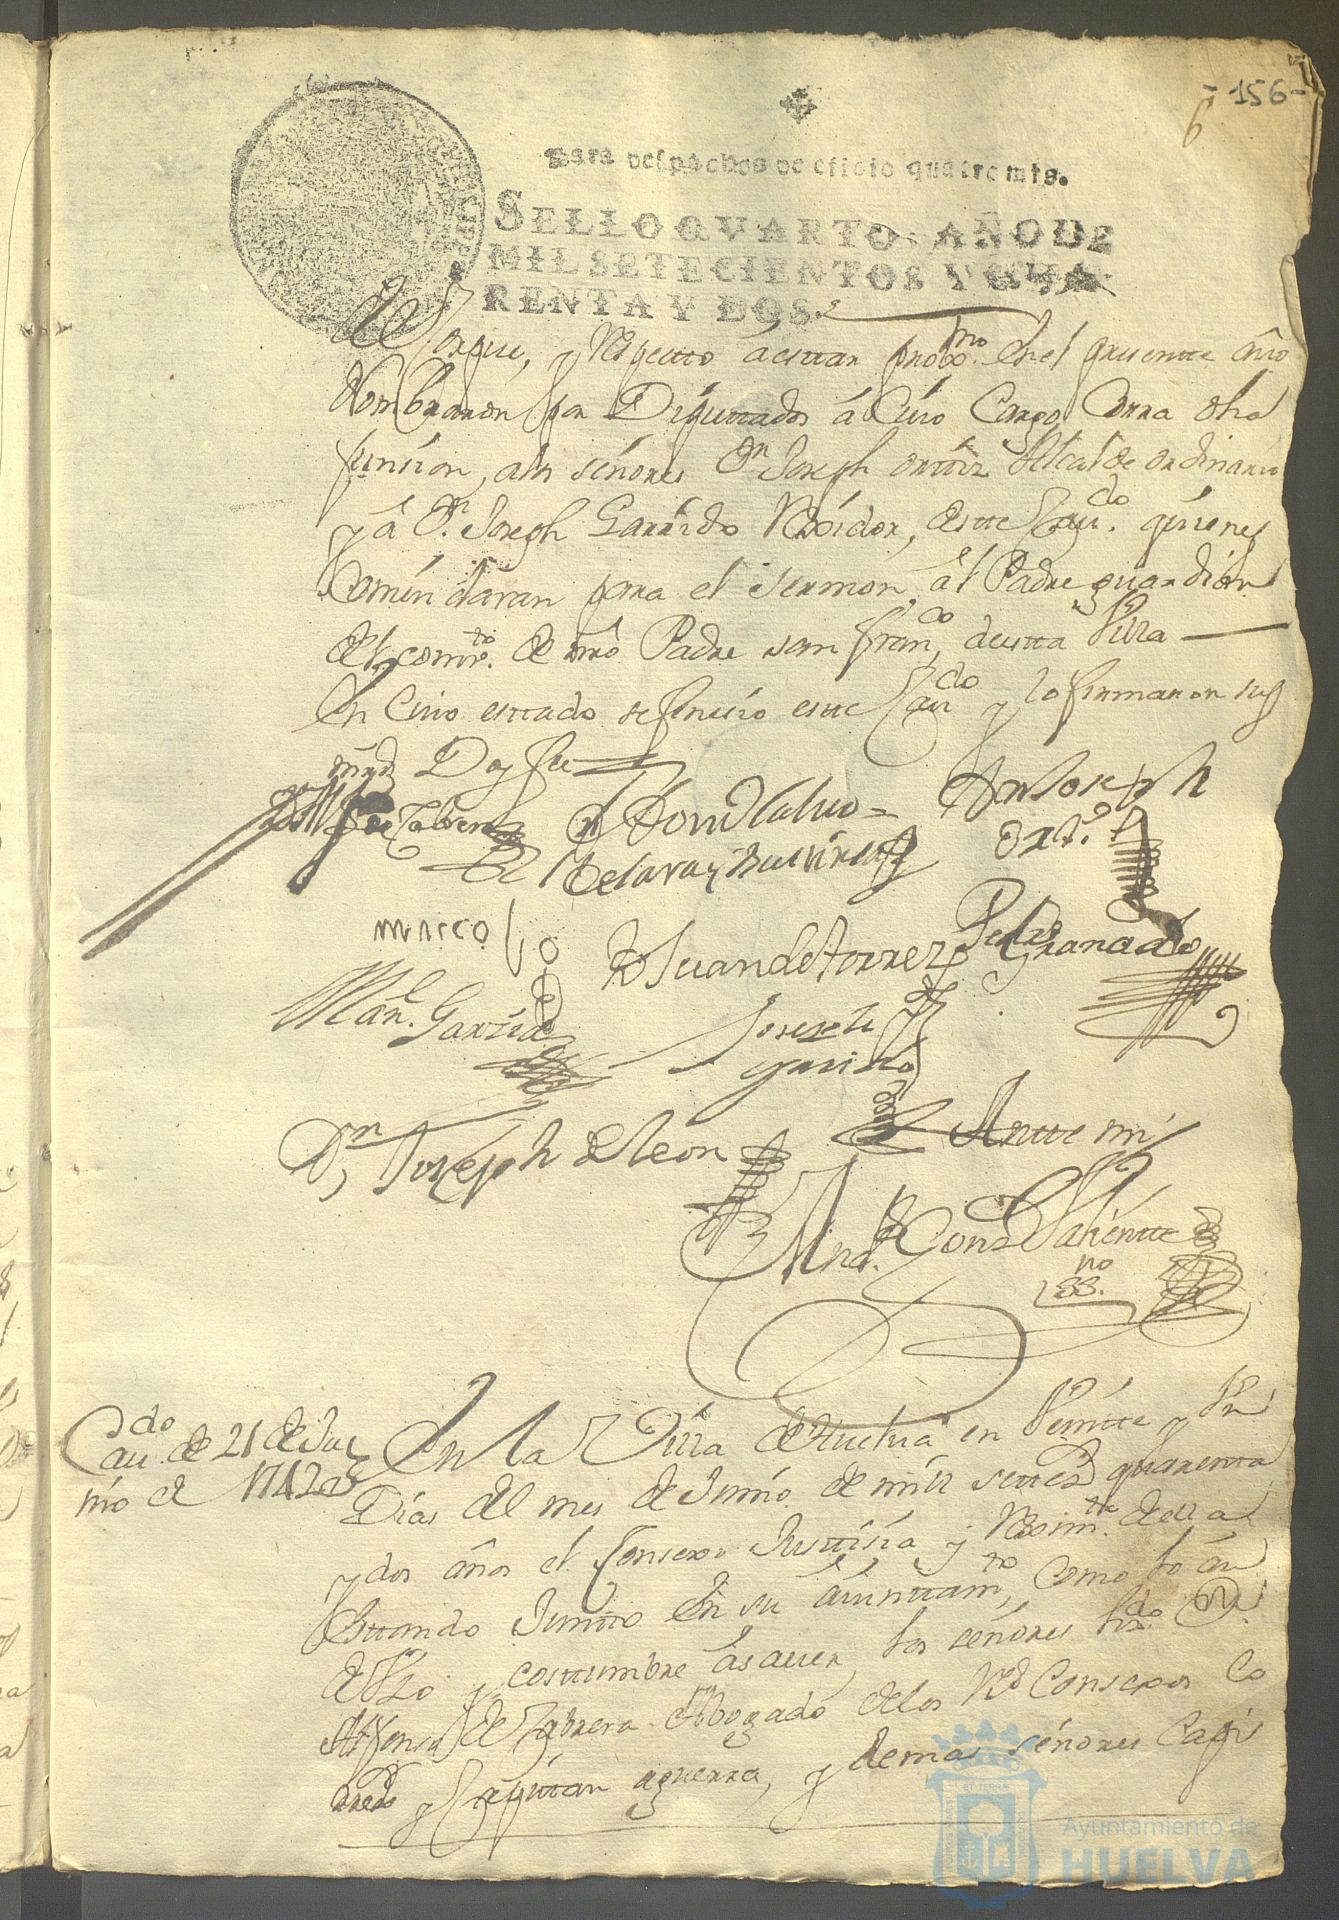 -156-
6
Para despachos de oficio quatro mrs.
SELLO QVARTO, AÑO DE
MIL SETECIENTOS Y QUA
RENTA Y DOS.
de Jorque, y Respecto á estar prox.mo en el presente año
Nombraron por Diputtados á Cuio Cargo Corra dha
funsion, a los señores Dn Joseph orttiz Alcalde ordinario
y á Dn Joseph Garrido Rexidor, deste Cau.do quienes
Comendaran para el sermon, al Padre guardian
del comv.to de nro Padre san fran.co desta Villa
En Cuio estado se fenesio este Cau.do y lo firmaron sus
mrds Doy fee
de Cabrera
Dn Joseph
Ort.s
marco
Juan de torrez
Pedro Granado
Man.l Garzia
Joseph
garrido
Dn Joseph de leon
Antte mi
And.s Gonz Valiente
ss.no
Cau.do de 21 de Ju
nio de 1742 as
En la Villa de Huelva en Veintte y Un
Dias del mes de Junio de mill setez.s quarenta
y dos años el Consexo Justtisia y Reximto. della
Esttando Juntto en su aiunttam.to, como lo án
de Uzo y costtumbre ásauer, los señores liz.do Dn
Alfonso de Cabrera Abogado de los Rs Consexos Co
rrexdor y Capittan aguerra, y demas señores Capi
Ayuntamiento de
HUELVA